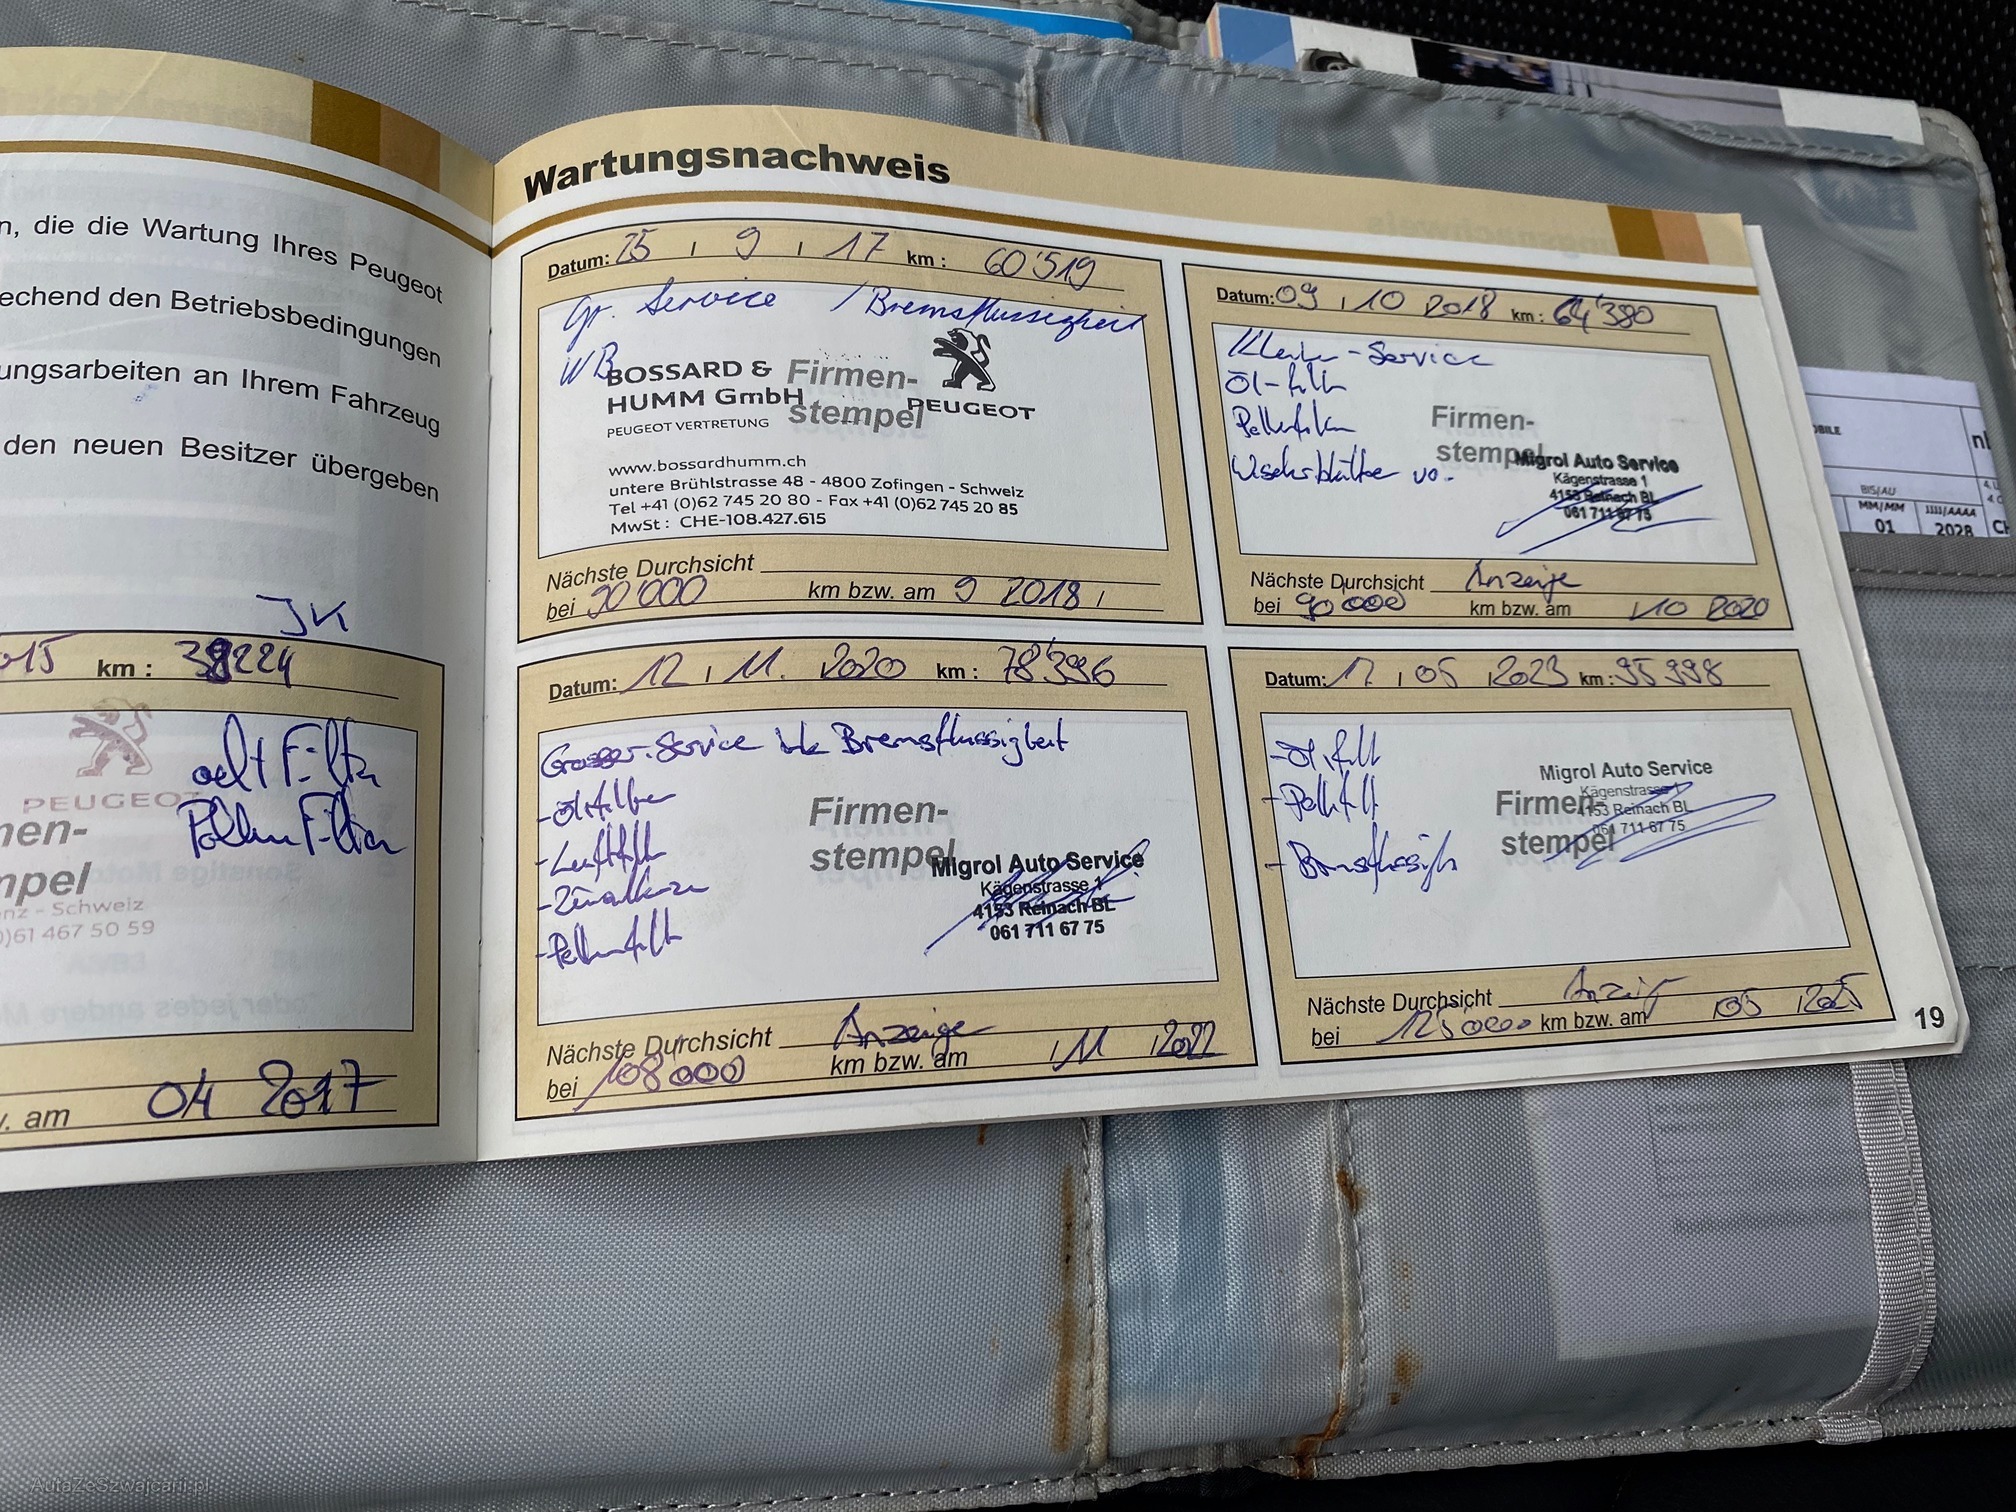 n, die die Wartung Ihres Peugeot
echend den Betriebsbedingungen
ungsarbeiten an Ihrem Fahrzeug
den neuen Besitzer übergeben
JK
15 km : 38224
PEUGEOT
oel+Filter
Pollen Filter
nen-
mpel
nz - Schweiz
0)61 467 50 59
w. am 04 2017
Wartungsnachweis
Datum: 25 9 17 km : 60'519
Gr. Service / Bremsflüssigkeit
WB
BOSSARD &
HUMM GmbH
PEUGEOT VERTRETUNG
Firmen-
stempel
PEUGEOT
www.bossardhumm.ch
untere Brühlstrasse 48 - 4800 Zofingen - Schweiz
Tel +41 (0)62 745 20 80 - Fax +41 (0)62 745 20 85
MwSt : CHE-108.427.615
Nächste Durchsicht
bei 90'000 km bzw. am 9 2018
Datum: 09 10 2018 km : 64'380
-Service
Firmen-
stempel
Migrol Auto Service
Kägenstrasse 1
4153 Reinach BL
061 711 67 75
Nächste Durchsicht Anzeige
bei 90000 km bzw. am 10 2020
Datum: 12 11. 2020 km : 78'396
Grosser-Service Bremsflüssigkeit
-Ölfilter
-Luftfilt
-Zündkerzen
-Pollenfilt
Firmen-
stempel
Migrol Auto Service
Kägenstrasse 1
4153 Reinach BL
061 711 67 75
Nächste Durchsicht Anzeige
bei 108'000 km bzw. am 11 2022
Datum: 17 05 2023 km : 95998
-Öl.filt
-Pollfilt
Firmen-
stempel
Migrol Auto Service
Kägenstrasse 1
4153 Reinach BL
061 711 67 75
Nächste Durchsicht Anzeige
bei 125000 km bzw. am 05 2025
19
BIS/AU
MM/MM JJJJ/AAAA
01 2028
AutaZeSzwajcarii.pl